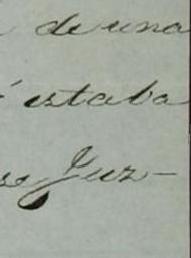 de una
estaba
se Juz-